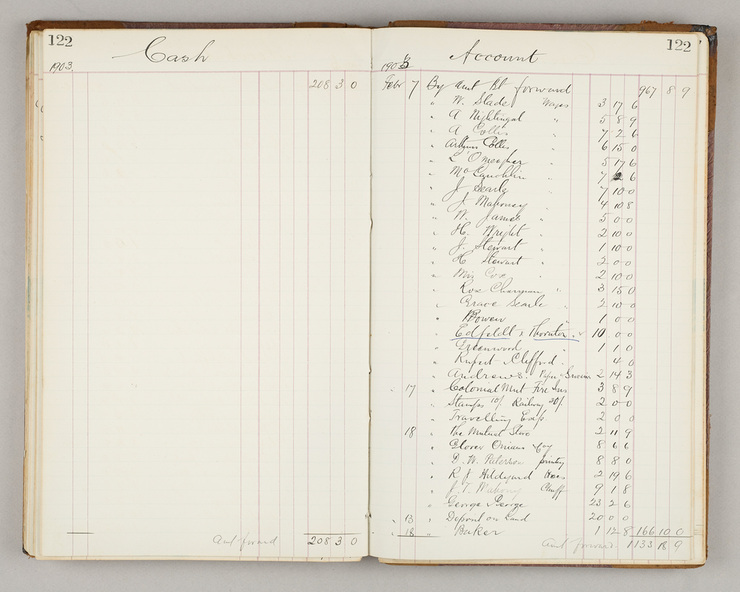 122
Cash
1903.
208 3 0
Amt forward 208 3 0
122
Account
1903
Febr 7 By amt Bt forward 967 8 9
" W. Slade Wages 3 17 6
" A Nightingal " 5 8 9
" A Collis " 7 2 6
" Collis 6 15 0
" L O'meagher " 5 17 6
" McLaughlin " 7 2 6
" J Searle " 7 10 0
" J. Mahoney " 4 10 8
" W. James " 5 0 0
" H. Wright " 2 10 0
" J. Stewart " 1 10 0
" H Stewart " 2 0 0
" Miss Cox " 2 10 0
" Rose Chapman " 3 15 0
" Grace Searle " 2 10 0
" Bowen 1 0 0
" Edfeldt & Thornton 10 0 0
" Greenwood 1 1 0
" Rupert Clifford 4 0
" Andrews. 2 14 3
" 17 " Colonial Mut Fire Ins 3 8 9
" Stamps 10/ Railway 30/ 2 0 0
" Travelling Exps 2 0 0
18 " The Mutual Store 2 11 9
" Glover Onians & Coy 8 6 6
" D. W. Paterson printing 8 8 0
" R J Hildyard 2 19 6
" J. T. Mahony Chaff 9 1 8
" George & George 23 2 6
" 13 " Deposit on Land 20 0 0
" 18 " Baker 1 12 8 166 10 0
Amt forward 1133 18 9